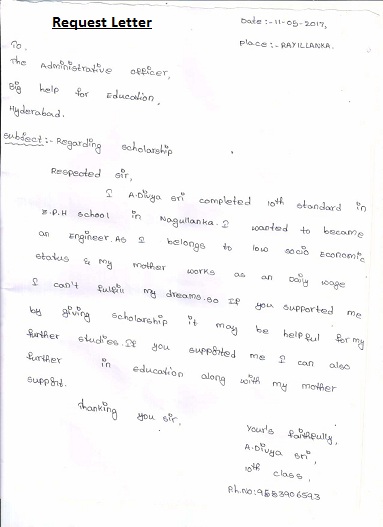 Request Letter
Date :- 11-05-2017,
Place :- RAYILLANKA.
To,
The Administrative officer,
Big help for Education,
Hyderabad.
Subject:- Regarding scholarship
Respected sir,
I A.Divya sri completed 10th standard in
Z.P.H school in Nagullanka. I wanted to became
an Engineer. As I belongs to low socio Economic
status & my mother works as an Daily wage
I can't fulfill my dreams. So If you supported me
by giving scholarship it may be helpful for my
further studies. If you supported me I can also
further in education along with my mother
support.
Thanking you sir.
Your's faithfully,
A.Divya sri,
10th class,
Ph.no: